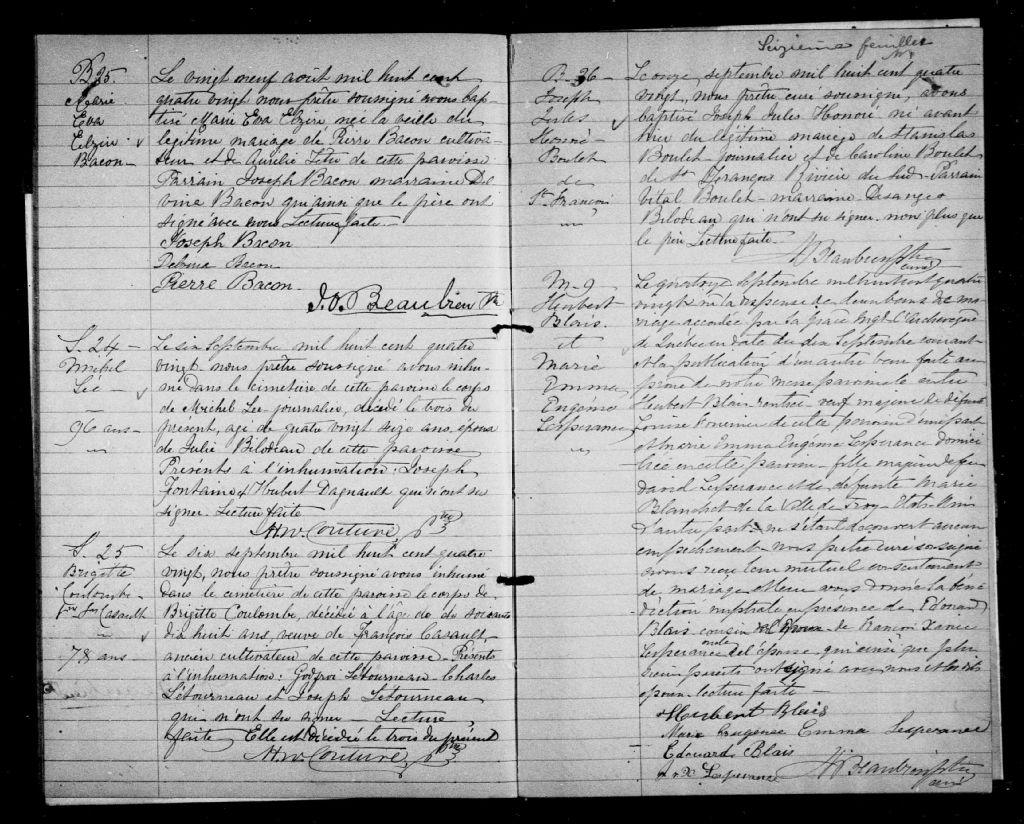 B 35.
Marie
Eva
Elzire
Bacon
Le vingt neuf août mil huit cent
quatre vingt nous prêtre soussigné avons bap-
tisé Marie Eva Elzire née la veille du
légitime mariage de Pierre Bacon cultiva-
teur et de Aurélie Têtu de cette paroisse
Parrain Joseph Bacon marraine De
vina Bacon qui ainsi que le père ont
signé avec nous Lecture faite.
Joseph Bacon
Delvina Bacon
Pierre Bacon
J.O. Beaubien Ptre
S. 24
Michel
Lee
96 ans
Le six Septembre mil huit cent quatre
vingt nous prêtre soussigné avons inhu-
mé dans le cimetière de cette paroisse le corps
de Michel Lee journalier, décédé le trois du
présent, agé de quatre vingt seize ans, époux
de Julie Bilodeau de cette paroisse
Présents à l'inhumation: Joseph
Fontaine & Hubert Dagnault qui n'ont su
signer. Lecture faite
H.W. Couture Ptre
S. 25
Brigitte
Coulombe
Frs Casault
78 ans
Le six septembre mil huit cent quatre
vingt, nous prêtre soussigné avons inhumé
dans le cimetière de cette paroisse le corps de
Brigitte Coulombe, décédée à l'âge de de soixante
dix huit ans, veuve de François Casault,
ancien cultivateur de cette paroisse. Présents
à l'inhumation: Godfroi Létourneau Charles
Létourneau et Joseph Létourneau
qui n'ont su signer - Lecture
faite Elle est décédée le trois du présent
H.W. Couture Ptre
Seizième feuillet
B. 36
Joseph
Jules
Honoré
Boulet
de
St François
Le onze septembre mil huit cent quatre
vingt, nous prêtre curé soussigné, avons
baptisé Joseph Jules Honoré né avant
hier du légitime mariage de Stanislas
Boulet journalier et de Caroline Boulet
de St François Rivière du Sud. Parrain
Vital Boulet marraine Desanges
Bilodeau qui n'ont su signer non plus que
le père Lecture faite.
Beaubien Ptre
curé
M. 9
Hubert
Blais.
et
Marie
Emma
Eugénie
Lesperance
Le quatorze Septembre mil huit cent quatre
vingt vû la dispense de deux bans de ma-
riage accordée par sa Grace Mgr. l'Archevêque
de Quebec en date du dix Septembre courant
et la publication d'un autre ban faite au
prone de notre messe paroissiale entre
Hubert Blais rentier veuf majeur de défunte
Louise Fournier de cette paroisse d'une part
et Marie Emma Eugénie Lesperance domici
liée en cette paroisse fille majeure de feu
David Lesperance et de défunte Marie
Blanchet de la Ville de Troy, Etats-Unis
d'autre part; ne s'étant découvert aucun
empêchement nous prêtre curé soussigné
avons reçu leur mutuel consentement
de mariage et leur avons donné la béné
diction nuptiale en presence de Edouard
Blais cousin de l'époux de François Xavier
Lesperance oncle de l'épouse qui ainsi que plu
sieurs parents ont signé avec nous et les
époux. lecture faite
Hubert Blais
Marie Eugénie Emma Lesperance
Edouard Blais
F. X. Lesperance
Beaubien Ptre
curé